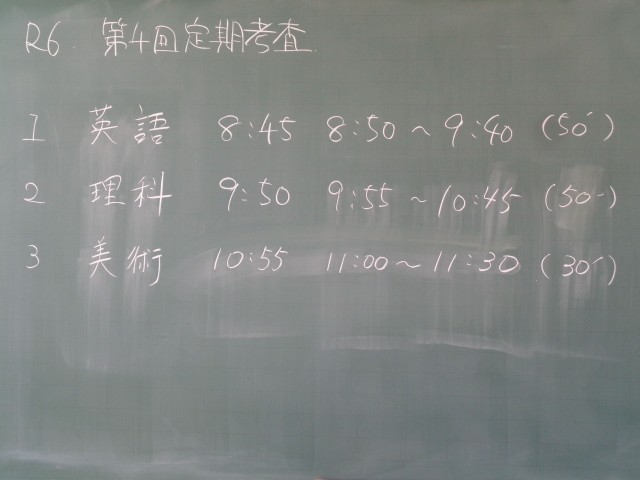 R6. 第4回定期考査.
1 英語 8:45 8:50～9:40 (50')
2 理科 9:50 9:55～10:45 (50')
3 美術 10:55 11:00～11:30 (30')